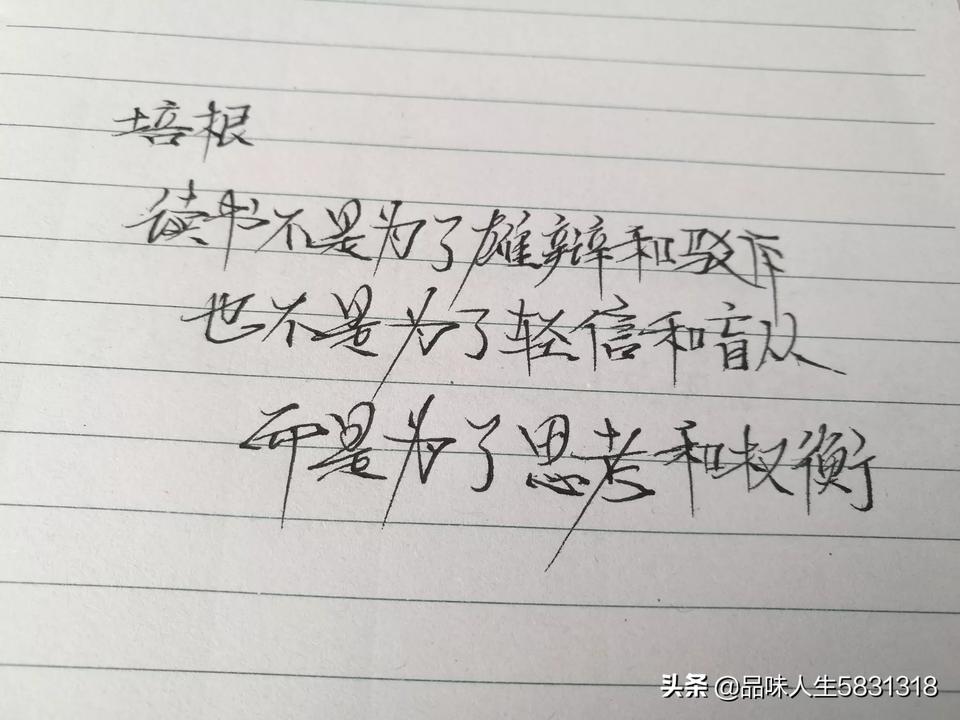 培根
读书不是为了雄辩和驳斥
也不是为了轻信和盲从
而是为了思考和权衡
头条 @品味人生5831318